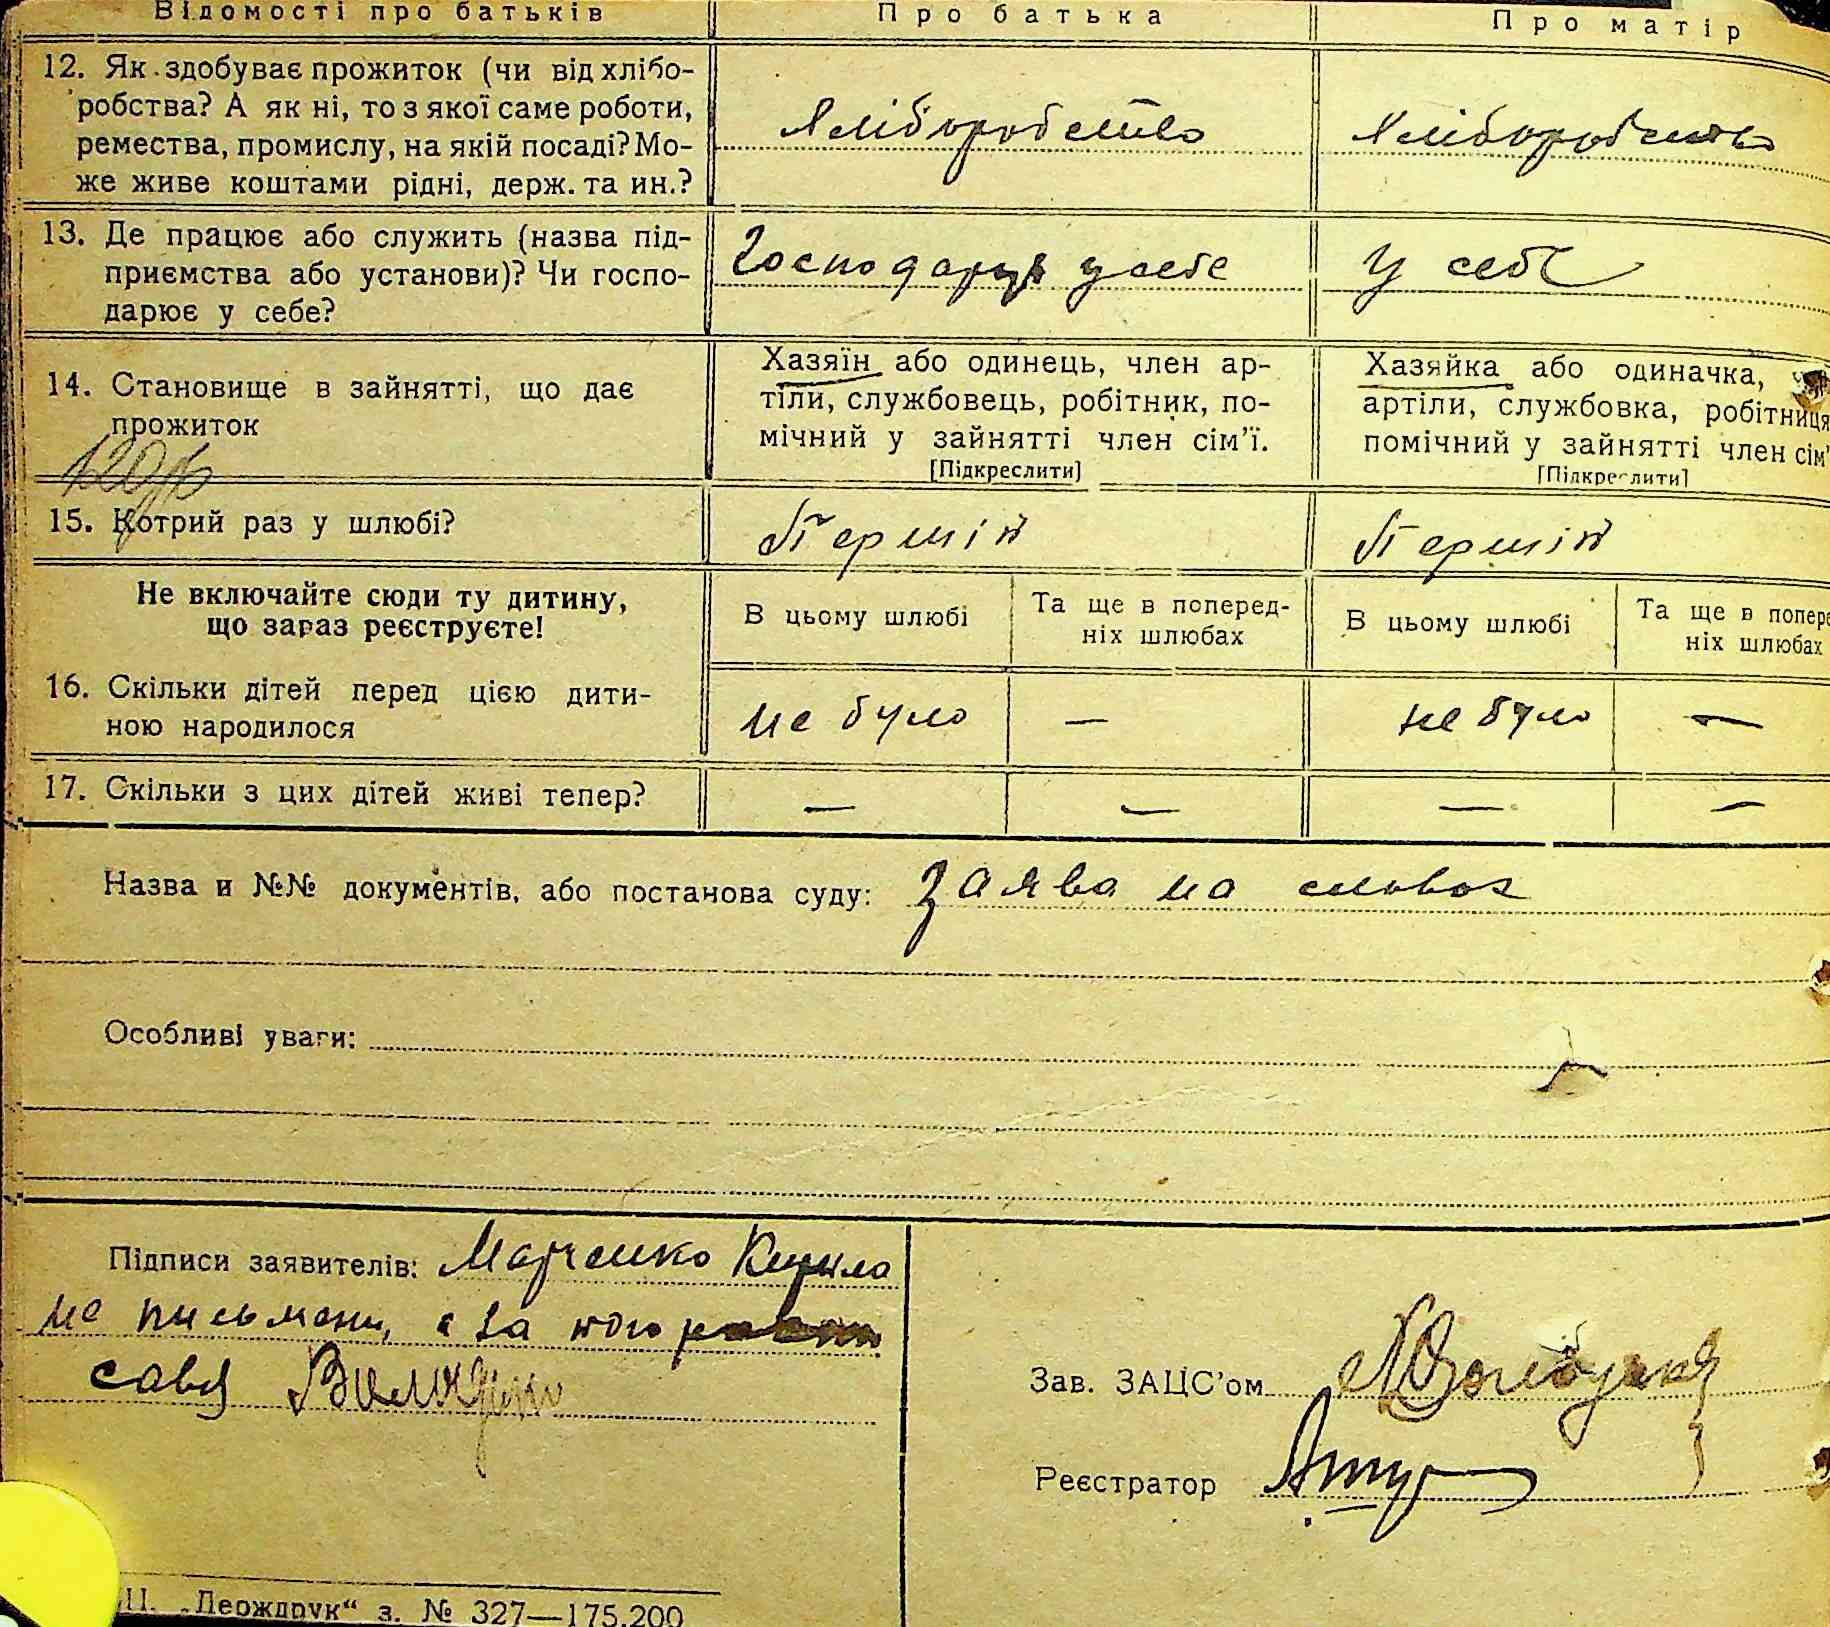 Відомості про батьків
Про батька
Про матір
12. Як здобуває прожиток (чи від хлібо-
робства? А як ні, то з якої саме роботи,
ремества, промислу, на якій посаді? Мо-
же живе коштами рідні, держ. та ин.?
Хліборобство
Хліборобство
13. Де працює або служить (назва під-
приємства або установи)? Чи госпо-
дарює у себе?
Господарює у себе
У себе
14. Становище в зайнятті, що дає
прожиток
Хазяїн або одинець, член ар-
тіли, службовець, робітник, по-
мічний у зайнятті член сім'ї.
[Підкреслити]
Хазяйка або одиначка,
артіли, службовка, робітниця
помічний у зайнятті член сім'
[Підкреслити]
15. Котрий раз у шлюбі?
Перший
Перший
Не включайте сюди ту дитину,
що зараз реєструєте!
В цьому шлюбі
Та ще в поперед-
ніх шлюбах
В цьому шлюбі
Та ще в попере
ніх шлюбах
16. Скільки дітей перед цією дити-
ною народилося
не було
—
не було
—
17. Скільки з цих дітей живі тепер?
—
—
—
—
Назва и №№ документів, або постанова суду: заява на словах
Особливі уваги:
Підписи заявителів: Марченко Кирило
не письмени, а за його
Зав. ЗАЦС'ом
Реєстратор
"Держдрук" з. № 327—175.200